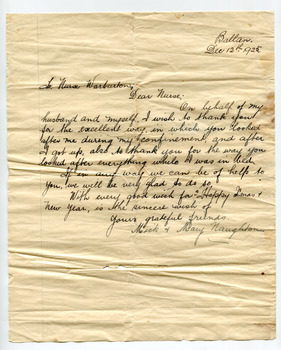 Ballan.
Dec 12th 192
To Nurse Warburton,
Dear Nurse.
On behalf of my
husband and myself, I wish to thank you
for the excellent way, in which you looked
after me during my confinement, and after
I got up, also to thank you for the way you
looked after everything while I was in bed.
If in any way we can be of help to
you, we will be very glad to do so.
With every good wish for "Happy Xmas &
New Year, is the sincere wish of
Yours grateful friends.
Mick & Mary Naughton